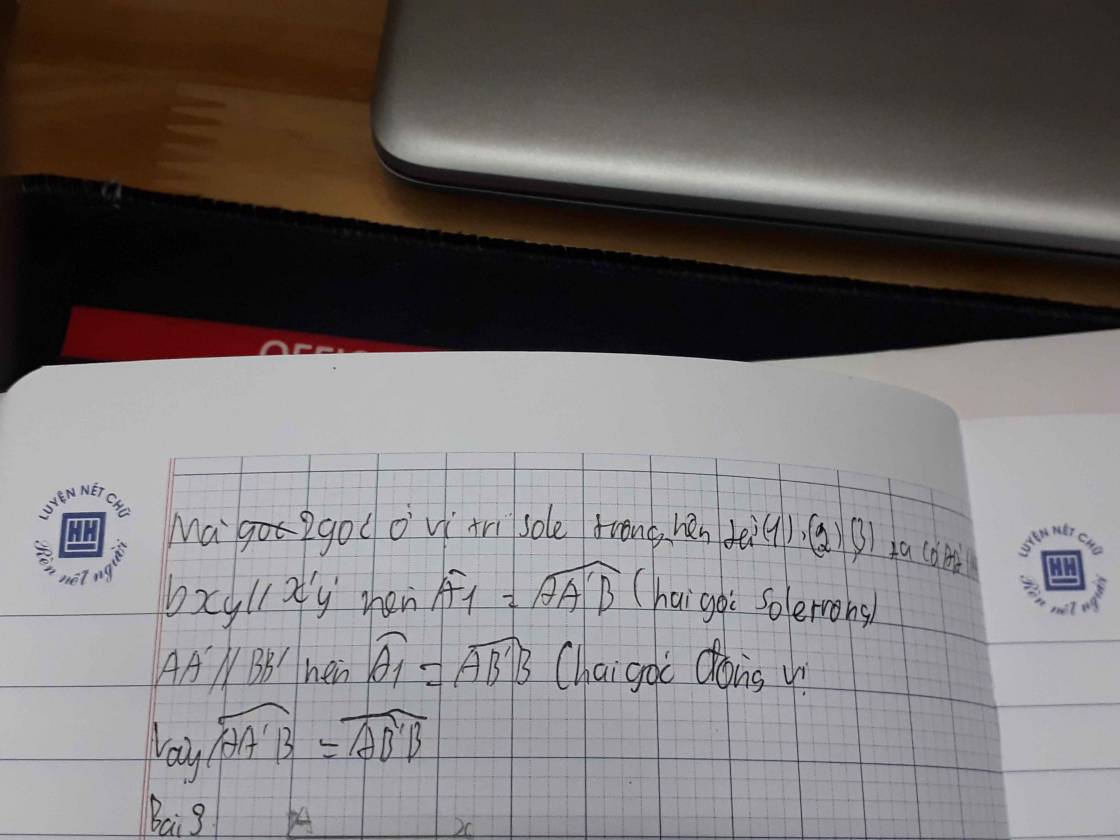 OFFIC
LUYỆN NÉT CHỮ
HH
Rèn nết người
LUYỆN NÉT CHỮ
HH
Rèn nết người
Mà góc 2 góc ở vị trí sole trong, nên từ (1), (2) (3) ta có AA' //
b xy // x'y' nên Â1 = AA'B (hai góc sole trong)
AA' // BB' nên Â1 = AB'B (hai góc đồng vị
Vậy AA'B = AB'B
Bài 3
A
x